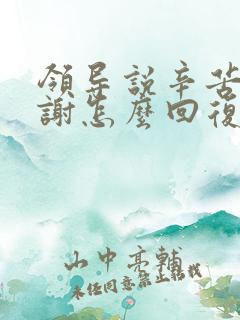 領导説辛苦
謝怎麼回復
山中亮輔
未经同意禁止转载